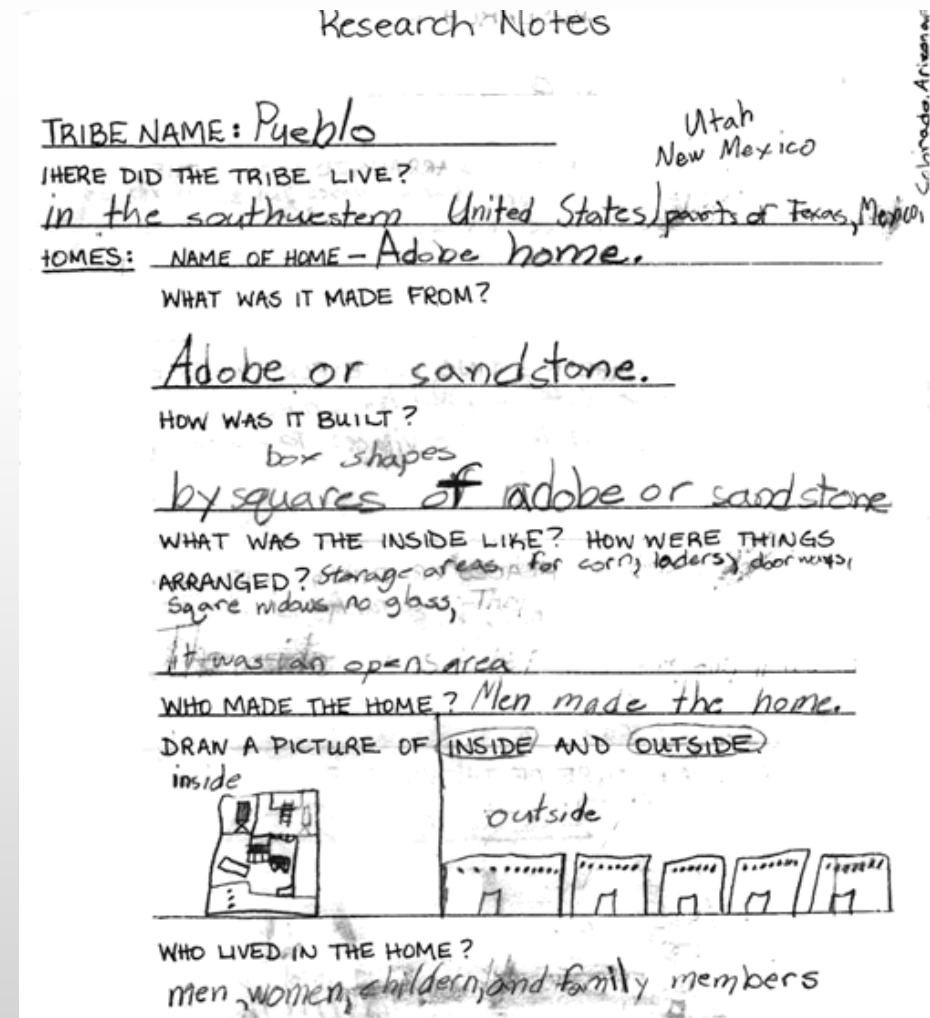 Research Notes
TRIBE NAME: Pueblo
Utah
New Mexico
HERE DID THE TRIBE LIVE?
in the southwestern United States/parts of Texas, Mexico,
Colorado, Arizona
HOMES: NAME OF HOME - Adobe home.
WHAT WAS IT MADE FROM?
Adobe or sandstone.
HOW WAS IT BUILT?
box shapes
by squares of adobe or sandstone
WHAT WAS THE INSIDE LIKE? HOW WERE THINGS
ARRANGED? Storage areas for corn, laders, door ways,
Sqare widows no glass,
It was an open area
WHO MADE THE HOME? Men made the home.
DRAW A PICTURE OF INSIDE AND OUTSIDE.
inside
outside
WHO LIVED IN THE HOME?
men, women, childern, and family members